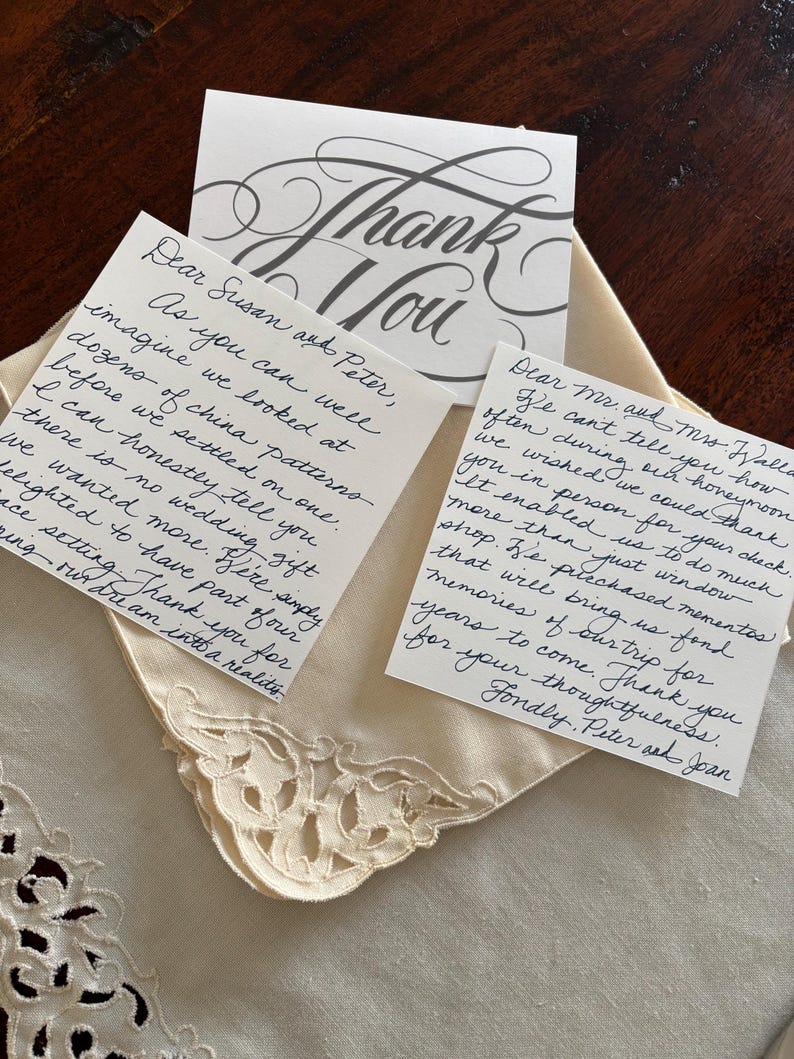 Thank
You
Dear Susan and Peter,
As you can well
imagine we looked at
dozens of china patterns
before we settled on one.
I can honestly tell you
there is no wedding gift
we wanted more. We're simply
delighted to have part of our
place setting. Thank you for
our dream into a reality.
Dear Mr. and Mrs. Walla
We can't tell you how
often during our honeymoon
we wished we could thank
you in person for your check.
It enabled us to do much
more than just window
shop. We puechased mementos
that will bring us fond
memories of our trip for
years to come. Thank you
for your thoughtfulness.
Fondly, Peter and Joan